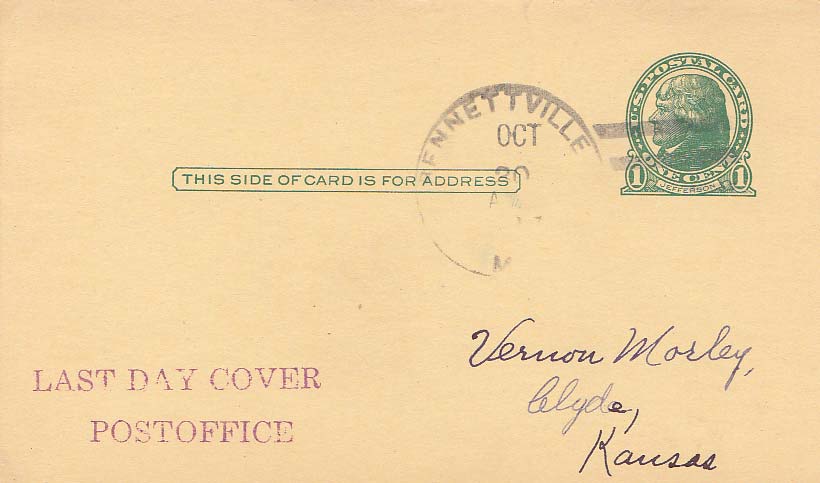 U.S. POSTAL CARD
ONE CENT
1 JEFFERSON 1
ENNETTVILLE
OCT
THIS SIDE OF CARD IS FOR ADDRESS
Vernon Morley,
Clyde,
Kansas
LAST DAY COVER
POSTOFFICE